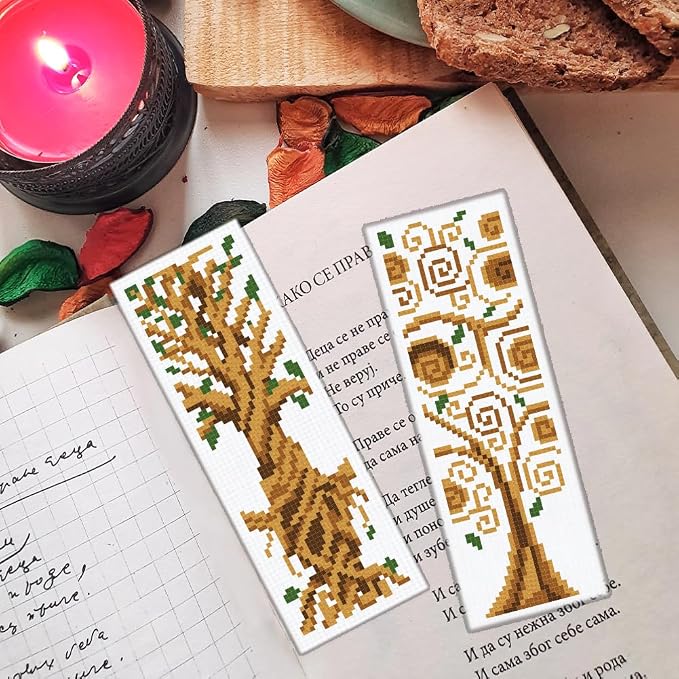 АКО СЕ ПРАВ
Деца се не пра
и не праве се
Не веруј.
То су приче
Праве се о
да сама на
Да тегле
и душе
и поно
и зубе
И са
И са
И да су нежна због себе сама.
И сама због себе сама.
и рода
праве деца
деца
и роде
су приче!